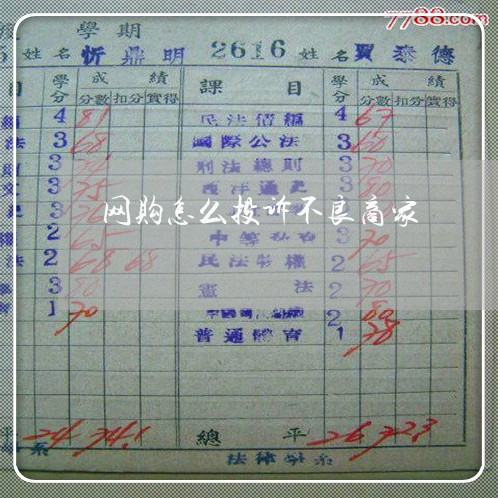 7788.com
學期
姓名 忻鼎明 2616 姓名 賈泰德
目 學分 成績 課目 學分 成績
分數 扣分 實得 分數 扣分 實得
4 81 民法債編 4 67
法 3 68 國際公法 3 60
3 刑法總則 3 70
3 75 西洋通史 3 80
3
網购怎么投诉不良商家
2 65 3 70
法 2 68 68 民法物權 2 65
3 80 憲法 2 70
1 70 2 80
普通體育 1 78
平 24 74.1 總平 26 72.3
系 法律學系